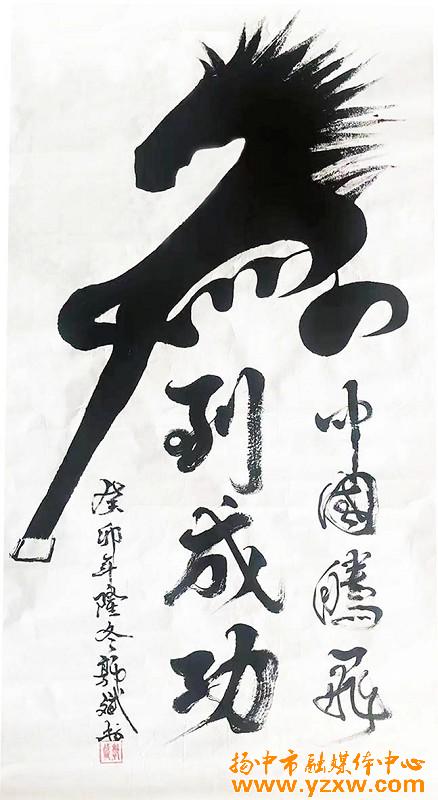 中國騰飛
到成功
癸卯年隆冬郭斌
扬中市融媒体中心
www.yzxw.com